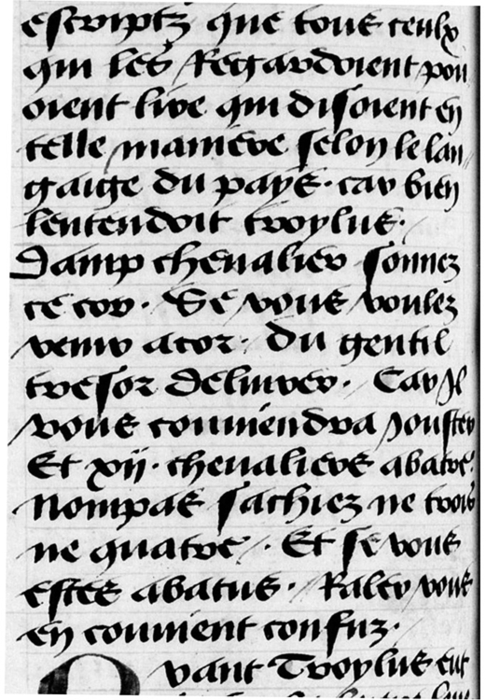 escriptz que tous ceulx
qui les Regardoient pou
oient lire qui disoient en
telle maniere selon le lan
gaige du pays. car bien
lentendoit troylus.
Damp chevalier sonnez
ce cor. Se vous voulez
venir a cor. du gentil
tresor delivrer. Car Jl
vous conviendra Jouster
Et xij. chevaliers abatre.
Nompas sachiez ne trois
ne quatre. Et se vous
estes abatus. Raler vous
en convient confuz.
Quant Troylus eut